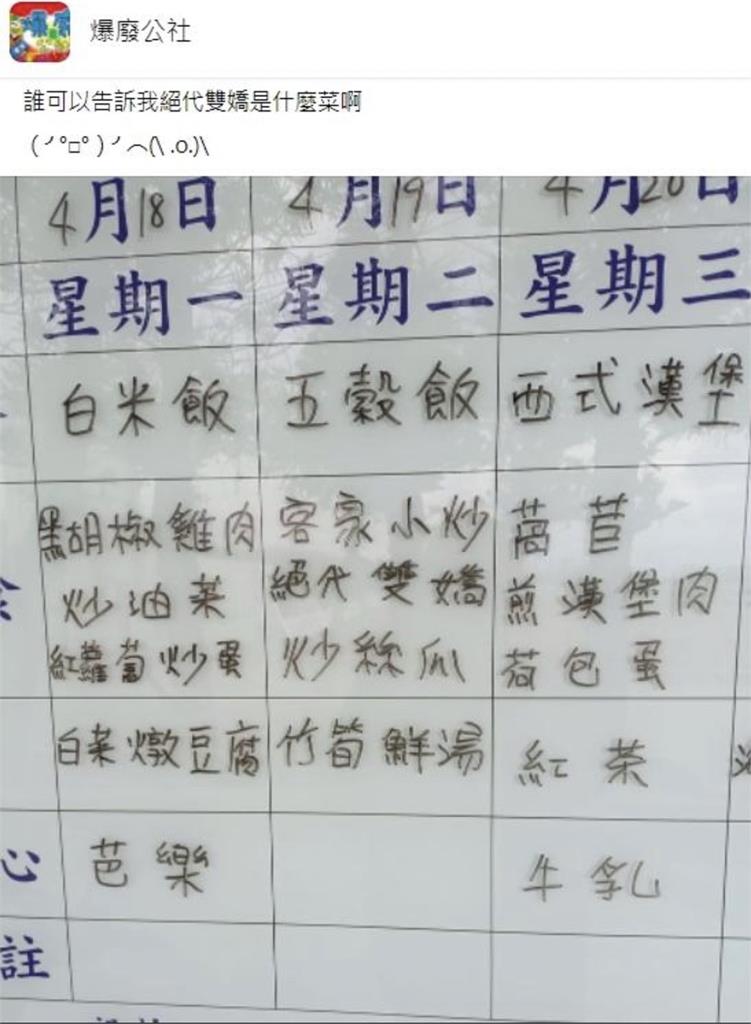 爆廢公社
誰可以告訴我絕代雙嬌是什麼菜啊
(╯°□°)╯︵(\ .o.)\
4月18日 4月19日 4月20日
星期一 星期二 星期三
白米飯 五穀飯 西式漢堡
黑胡椒雞肉 客家小炒 萵苣
炒油菜 絕代雙嬌 煎漢堡肉
紅蘿蔔炒蛋 炒絲瓜 荷包蛋
白菜燉豆腐 竹筍鮮湯 紅茶
心 芭樂 牛乳
註